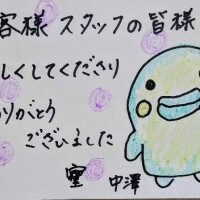 客様 スタッフの皆様
しくしてくださり
ありがとう
ございました
中澤